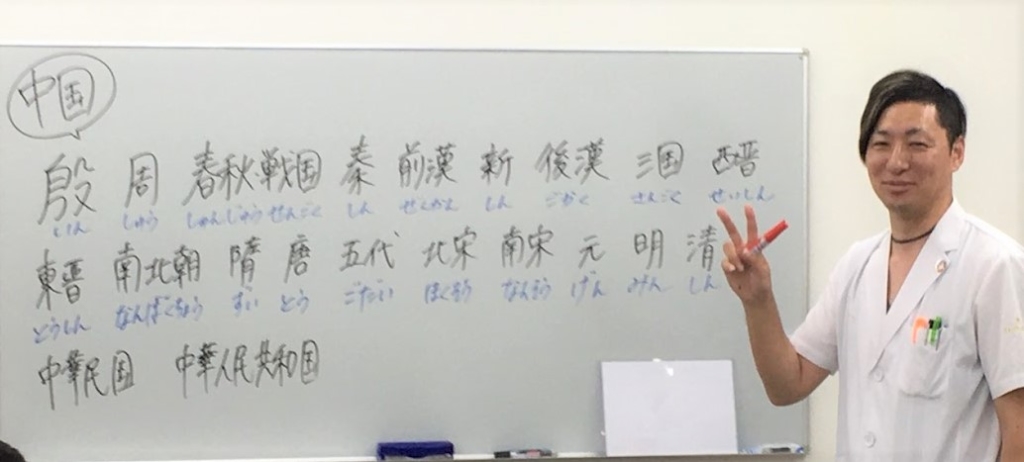 中国
殷 周 春秋戦国 秦 前漢 新 後漢 三国 西晋
いん しゅう しゅんじゅう せんごく しん ぜんかん しん ごかん さんごく せいしん
東晋 南北朝 隋 唐 五代 北宋 南宋 元 明 清
とうしん なんぼくちょう ずい とう ごだい ほくそう なんそう げん みん しん
中華民国 中華人民共和国